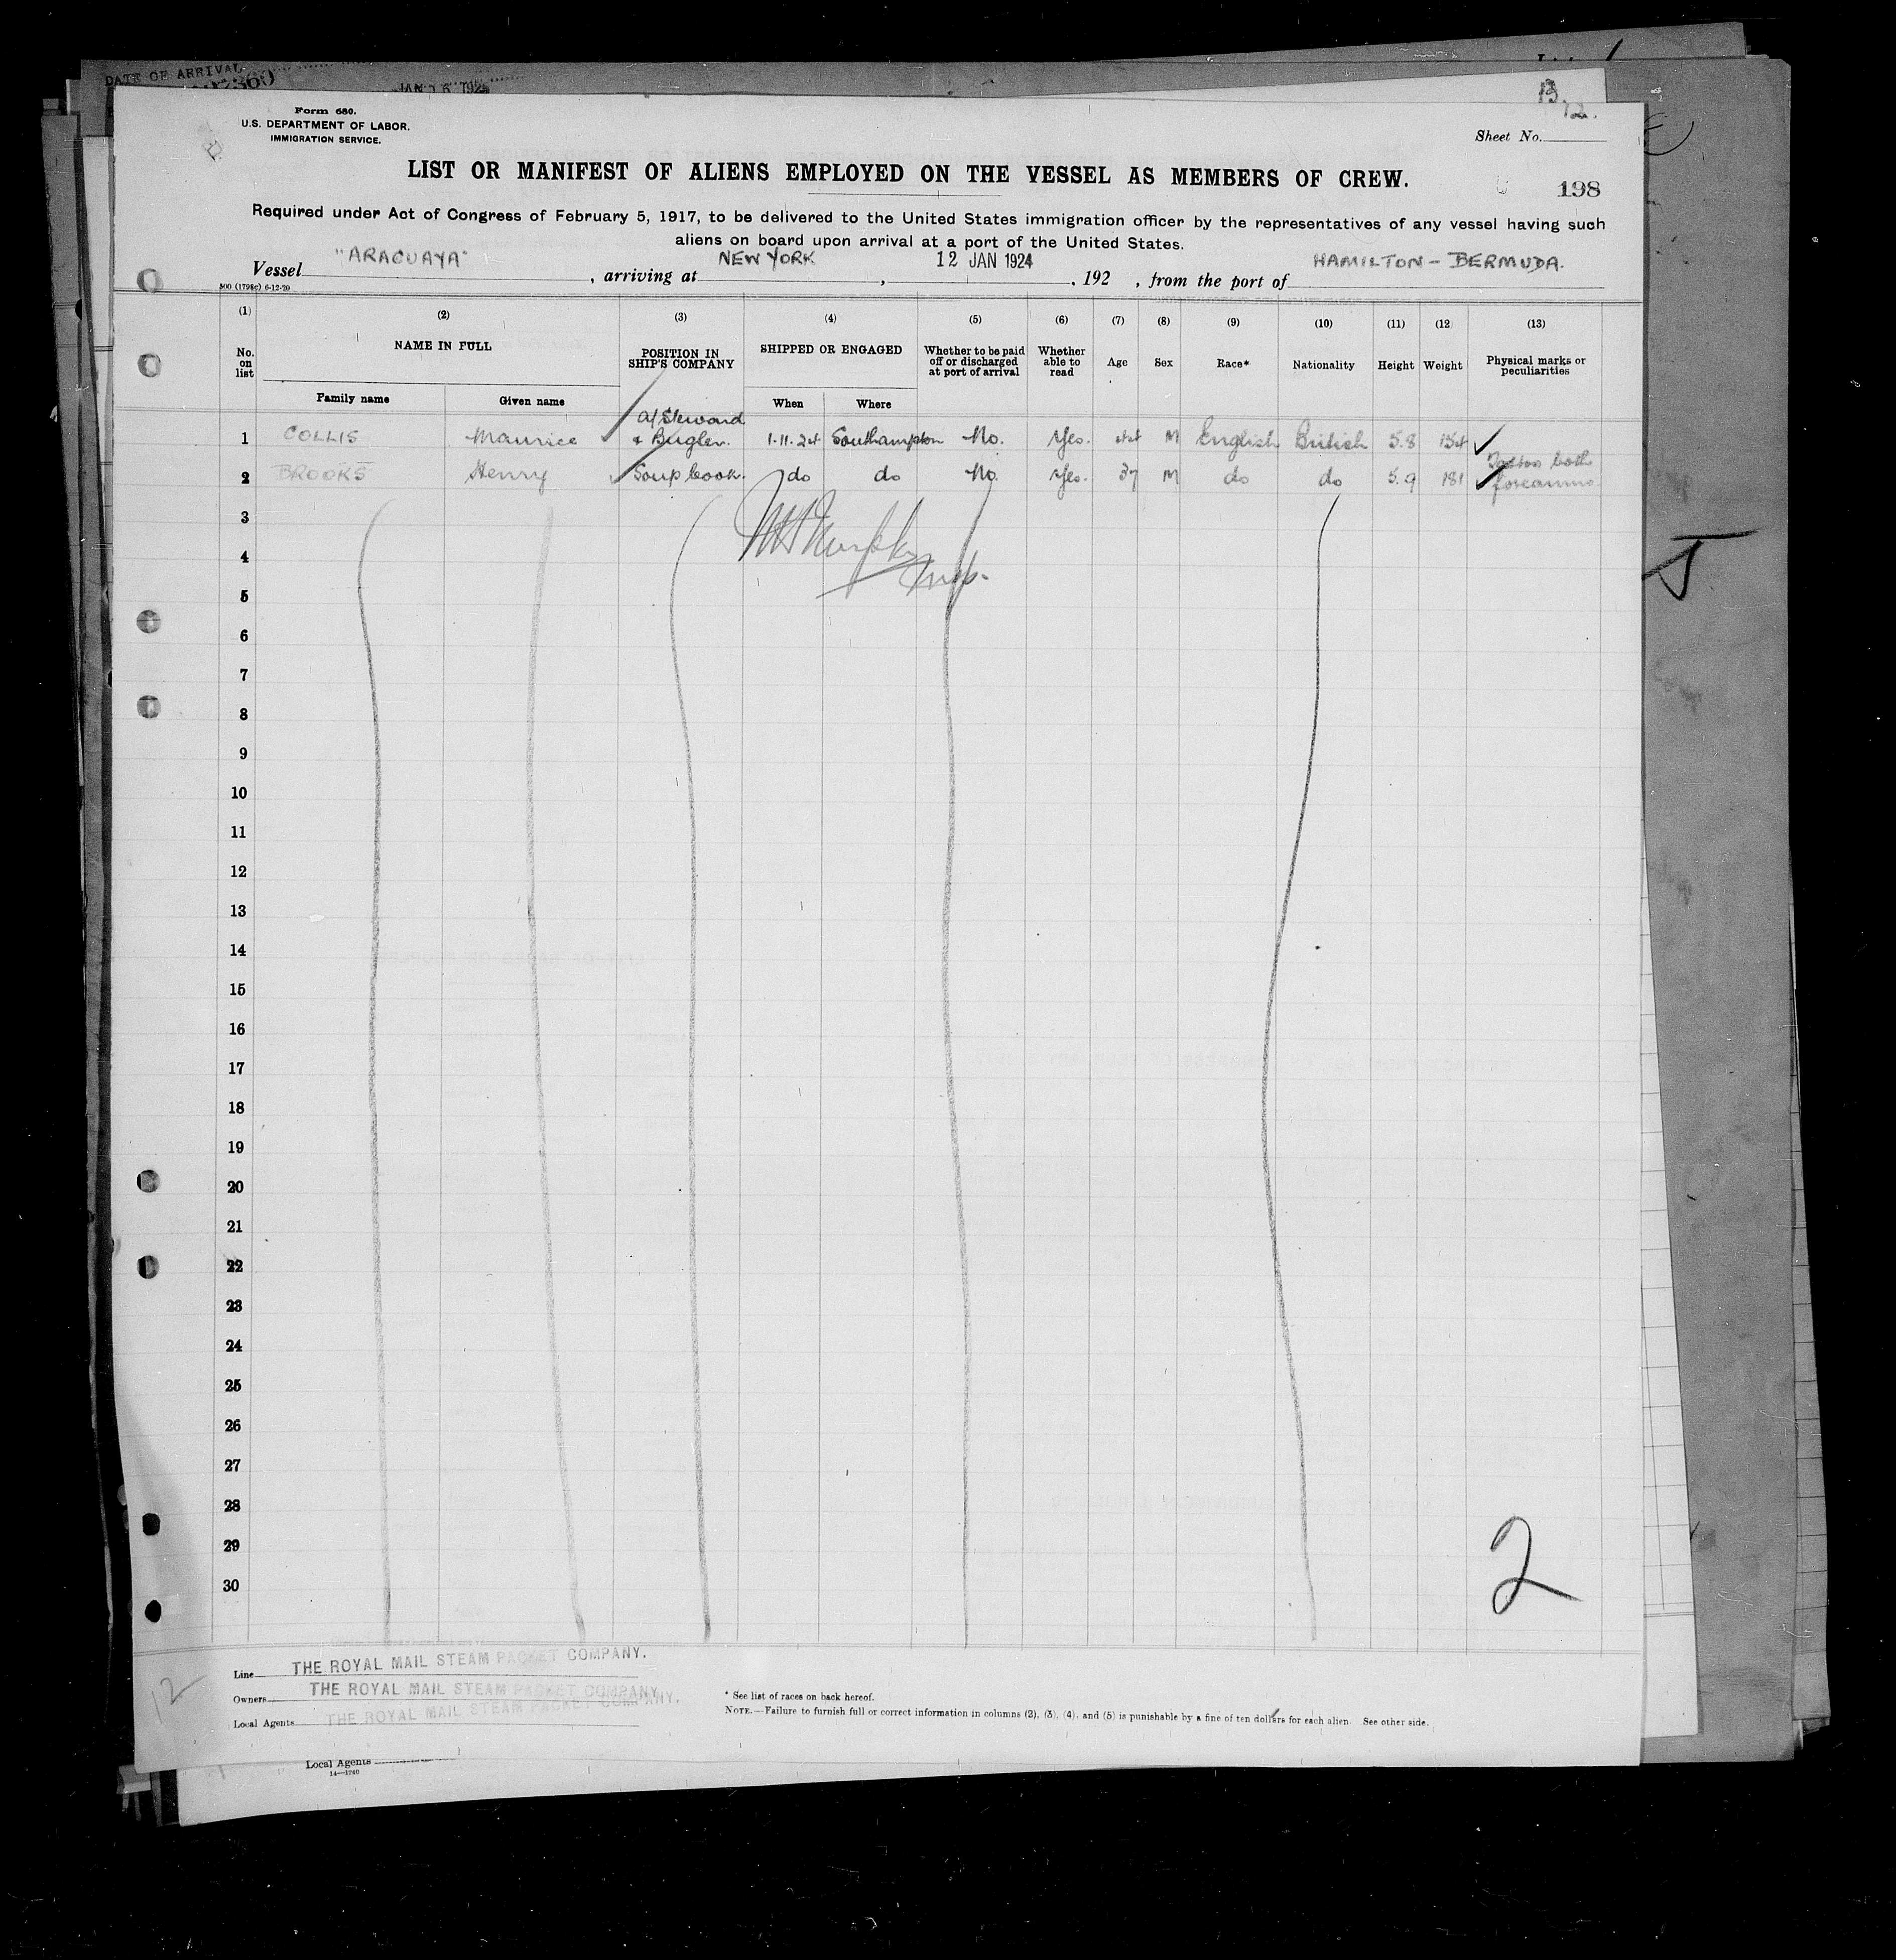 DATE OF ARRIVAL
JAN 16 192
Form 680.
U.S. DEPARTMENT OF LABOR.
IMMIGRATION SERVICE.
12.
Sheet No.
LIST OR MANIFEST OF ALIENS EMPLOYED ON THE VESSEL AS MEMBERS OF CREW.
198
Required under Act of Congress of February 5, 1917, to be delivered to the United States immigration officer by the representatives of any vessel having such
aliens on board upon arrival at a port of the United States.
Vessel "ARAGUAYA", arriving at NEW YORK, 12 JAN 1924, 192 , from the port of HAMILTON - BERMUDA.
500 (1798c) 6-12-20
(1) (2) (3) (4) (5) (6) (7) (8) (9) (10) (11) (12 (13)
No. on list NAME IN FULL POSITION IN SHIP'S COMPANY SHIPPED OR ENGAGED Whether to be paid off or discharged at port of arrival Whether able to read Age Sex Race* Nationality Height Weight Physical marks or peculiarities
Family name Given name When Where
1 COLLIS Maurice A/Steward & Bugler. 1.11.24 Southampton No. Yes. 44 M English British 5.8 154
2 BROOKS Henry Soup Cook. do do No. Yes. 37 M do do 5.9 181 Tattoo both forearms.
3
4
5
6
7
8
9
10
11
12
13
14
15
16
17
18
19
20
21
22
23
24
25
26
27
28
29
30
Murphy
Insp.
2
12
Line THE ROYAL MAIL STEAM PACKET COMPANY.
Owners THE ROYAL MAIL STEAM PACKET COMPANY
Local Agents THE ROYAL MAIL STEAM PACKET COMPANY.
* See list of races on back hereof.
NOTE.—Failure to furnish full or correct information in columns (2), (3), (4), and (5) is punishable by a fine of ten dollars for each alien. See other side.
Local Agents
14—1240